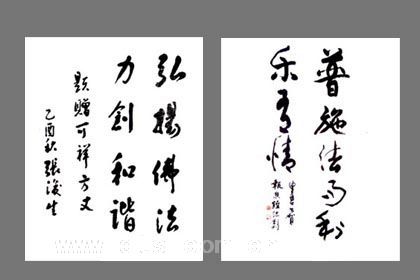 弘揚佛法
力創和諧
題贈可祥方丈
乙酉秋張浚生
普施法雨利
乐有情